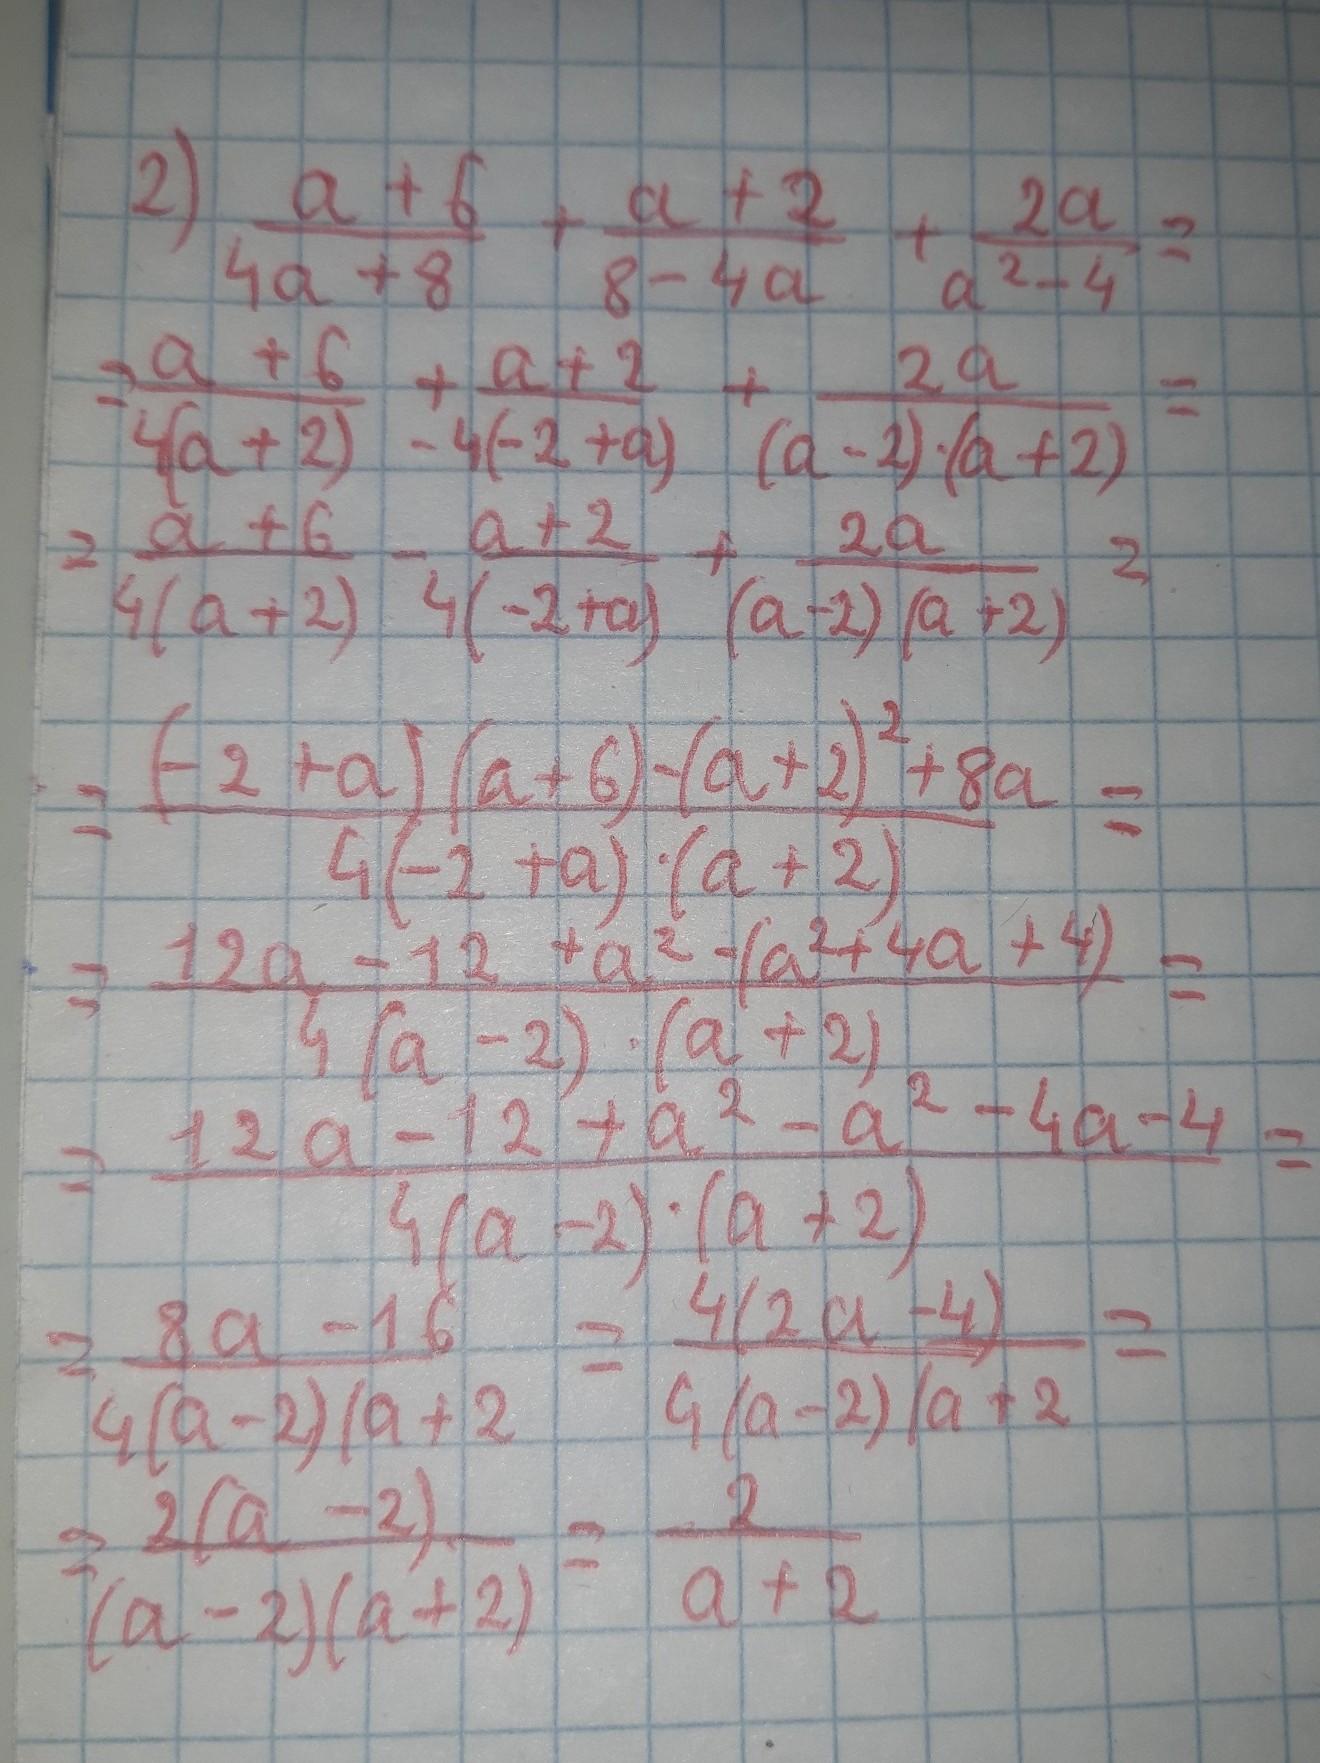 2) (a + 6)/(4a + 8) + (a + 2)/(8 - 4a) + 2a/(a² - 4) =
= (a + 6)/(4(a + 2)) + (a + 2)/(-4(-2 + a)) + 2a/((a - 2)·(a + 2)) =
= (a + 6)/(4(a + 2)) - (a + 2)/(4(-2 + a)) + 2a/((a - 2)(a + 2)) =
= ((-2 + a)(a + 6) - (a + 2)² + 8a)/(4(-2 + a)·(a + 2)) =
= (12a - 12 + a² - (a² + 4a + 4))/(4(a - 2)·(a + 2)) =
= (12a - 12 + a² - a² - 4a - 4)/(4(a - 2)·(a + 2)) =
= (8a - 16)/(4(a - 2)(a + 2) = 4(2a - 4)/(4(a - 2)(a + 2) =
= 2(a - 2)/((a - 2)(a + 2)) = 2/(a + 2)